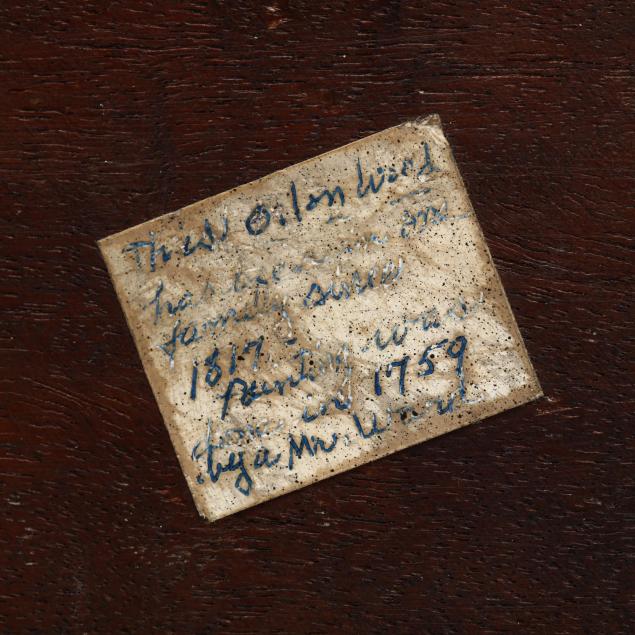 This Oil on Wood
has been in one
family since
1817 -
Painting was
done in 1759
by a Mr. Ward